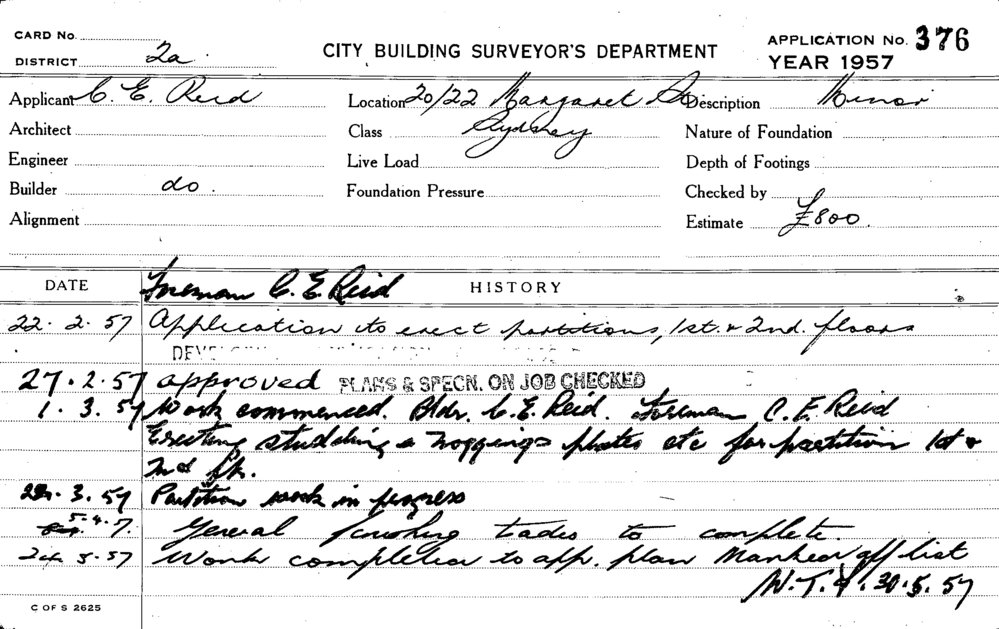 CARD No.
DISTRICT 2a.
CITY BUILDING SURVEYOR'S DEPARTMENT
APPLICATION No. 376
YEAR 1957
Applicant C. E. Reid Location 20/22 Margaret St Description Minor
Architect Class Sydney Nature of Foundation
Engineer Live Load Depth of Footings
Builder do. Foundation Pressure Checked by
Alignment Estimate £800.
DATE Foreman C. E. Reid HISTORY
22. 2. 57 Application to erect partitions, 1st. & 2nd. floors
27. 2. 57 approved PLANS & SPECN. ON JOB CHECKED
1. 3. 57 Work commenced. Bldr. C. E. Reid. Foreman C. E. Reid
Erecting studding & noggings plates etc for partition 1st &
2nd flr.
22. 3. 57 Partition work in progress
5. 4. 7. General finishing trades to complete.
24 5. 57 Work completed to app. plan Marked off list
30. 5. 57
C OF S 2625